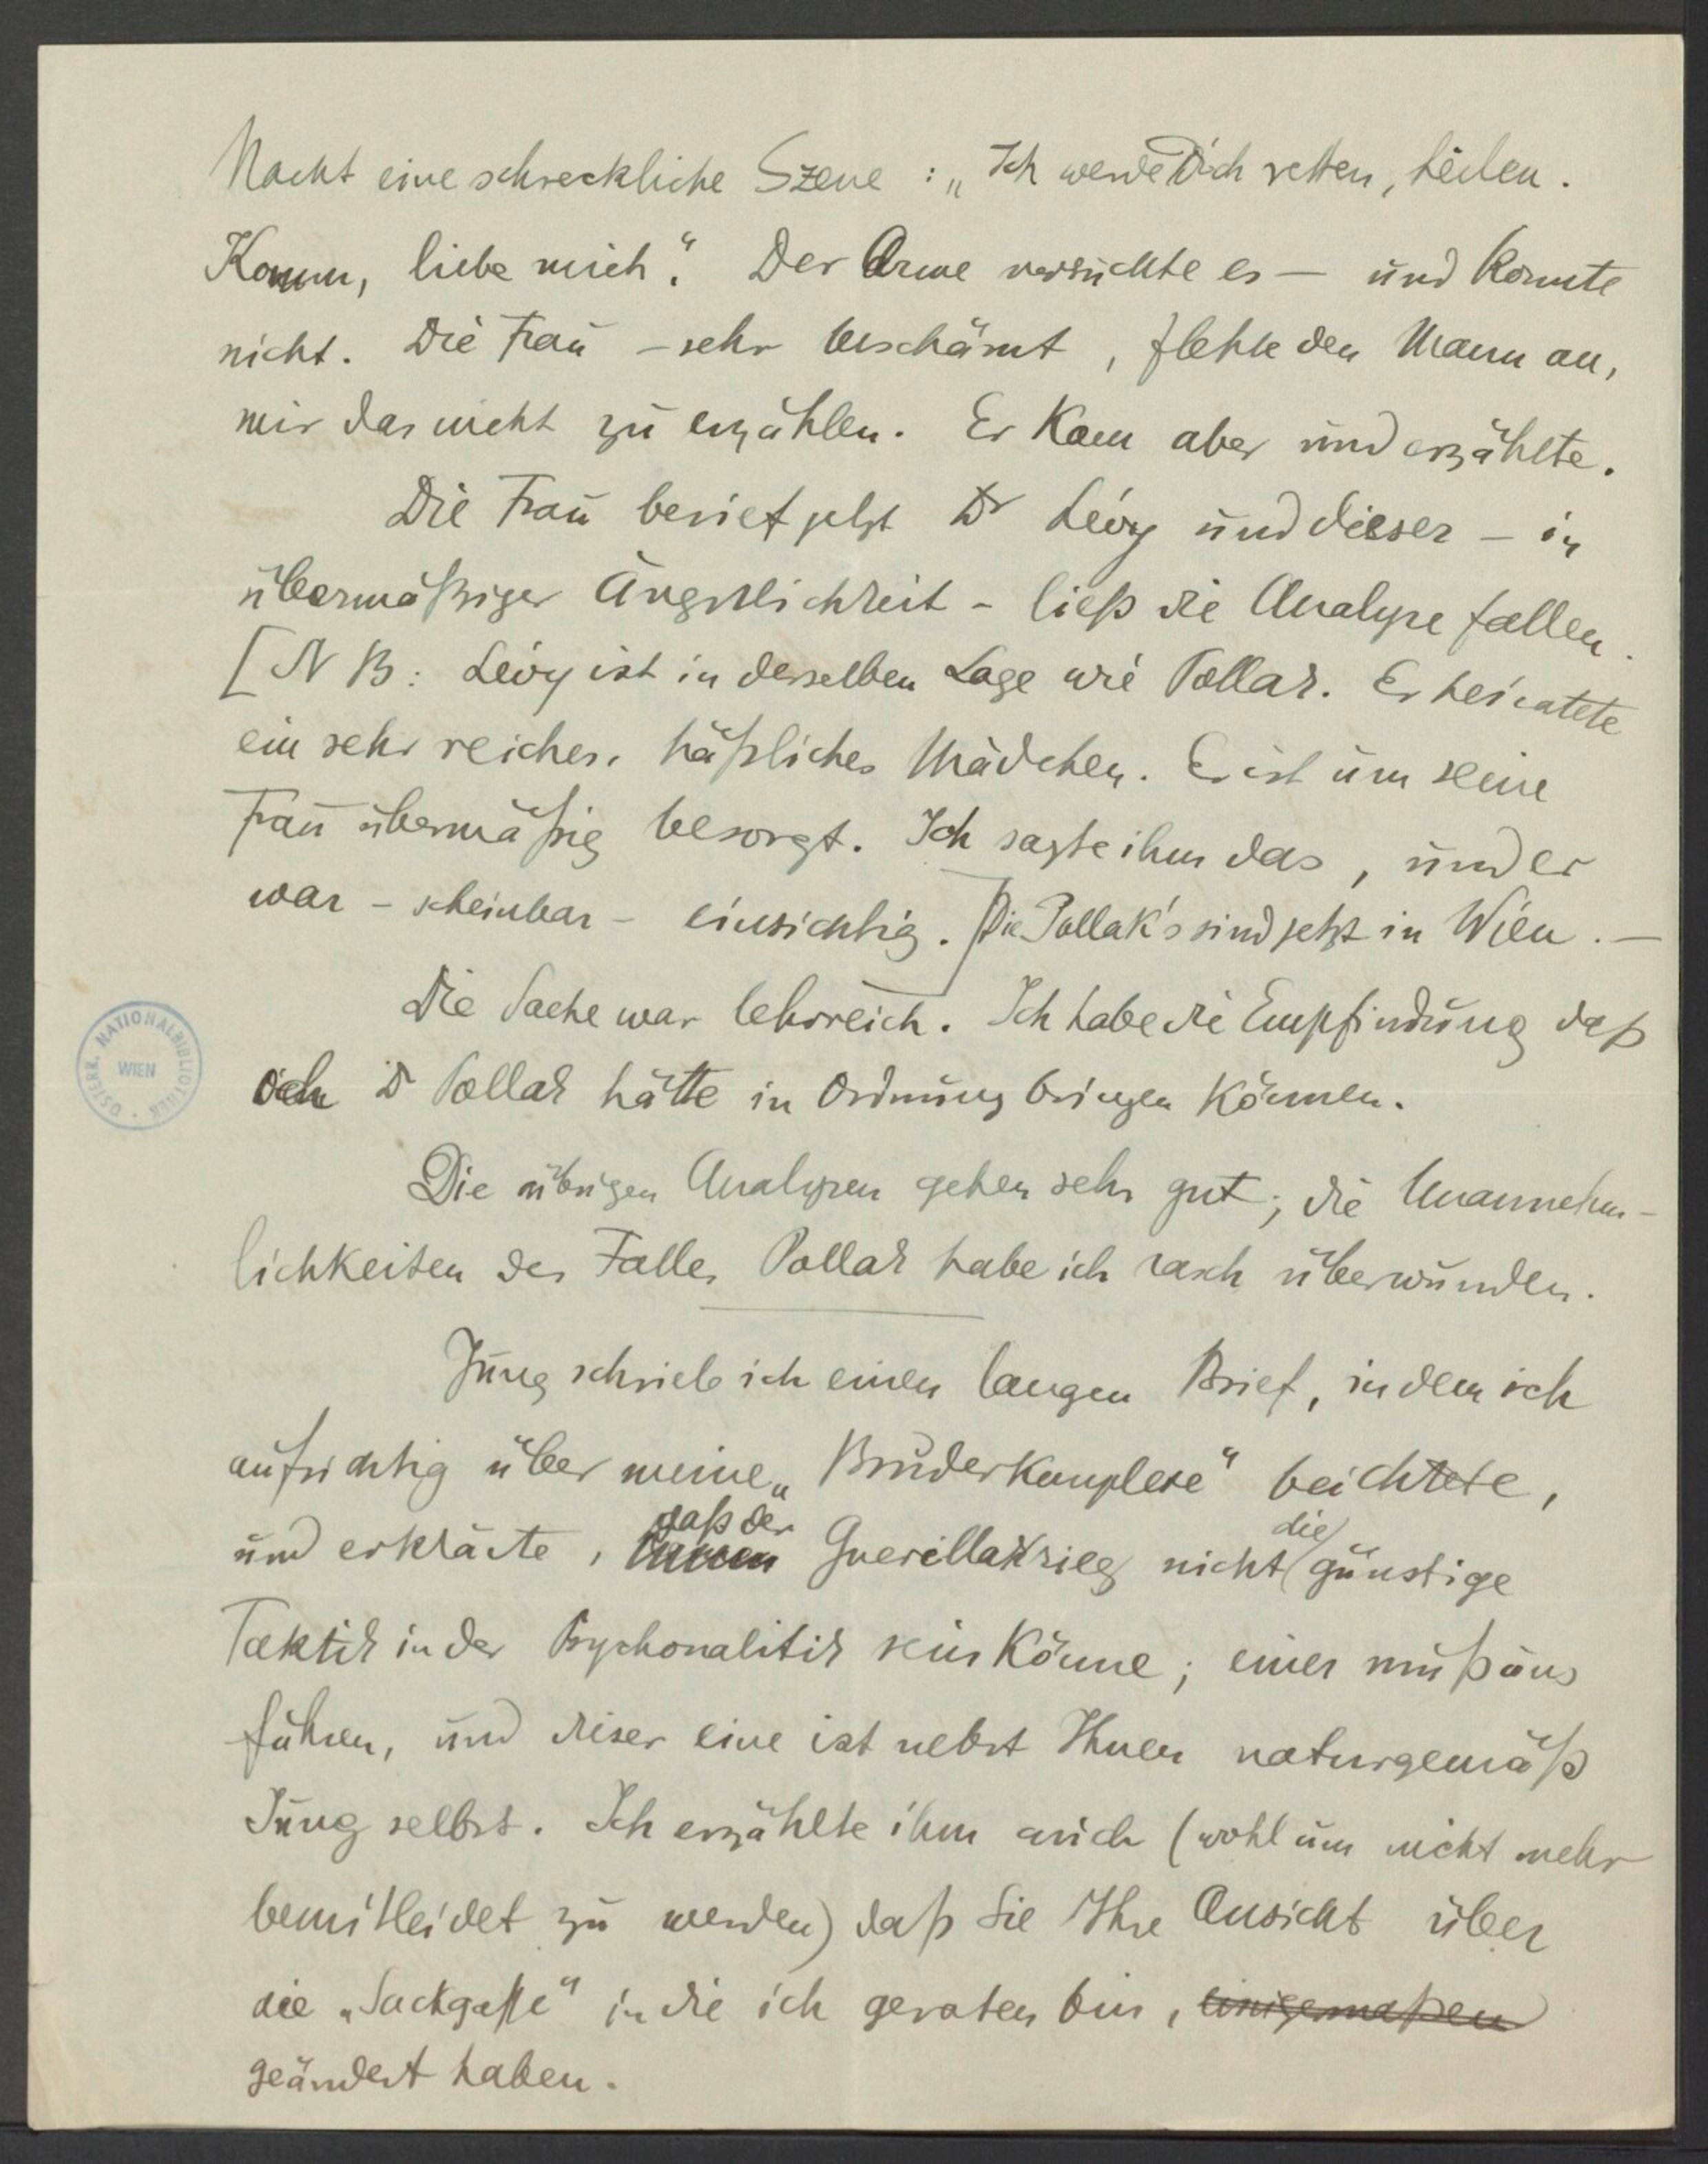 Nacht eine schreckliche Szene : „Ich werde Dich retten, heilen.
Komm, liebe mich“. Der Arme versuchte es — und konnte
nicht. Die Frau – sehr beschämt, flehte den Mann an,
mir das nicht zu erzählen. Er kam aber und erzählte.
Die Frau berief jetzt Dr Lévy und dieser – in
übermäßiger Ängstlichkeit – ließ die Analyse fallen.
[NB: Lévy ist in derselben Lage wie Pollak. Er heiratete
ein sehr reiches, häßliches Mädchen. Er ist um seine
Frau übermäßig besorgt. Ich sagte ihm das, und er
war – scheinbar – einsichtig.] Die Pollak's sind jetzt in Wien. —
Die Sache war lehrreich. Ich habe die Empfindung daß
ich Dr Pollak hätte in Ordnung bringen können.
Die übrigen Analysen gehen sehr gut; die Unannehm-
lichkeiten des Falles Pollak habe ich rasch überwunden.
Jung schrieb ich einen langen Brief, in dem ich
aufrichtig über meine „Bruderkomplexe“ beichtete,
und erklärte, daß der Guerillakrieg nicht die günstige
Taktik in der Psychonalitik sein könne; einer muß uns
führen, und dieser eine ist nebst Ihnen naturgemäß
Jung selbst. Ich erzählte ihm auch (wohl um nicht mehr
bemitleidet zu werden) daß Sie Ihre Ansicht über
die „Sackgasse“ in die ich geraten bin, einigermaßen
geändert haben.
ÖSTERR. NATIONALBIBLIOTHEK
WIEN